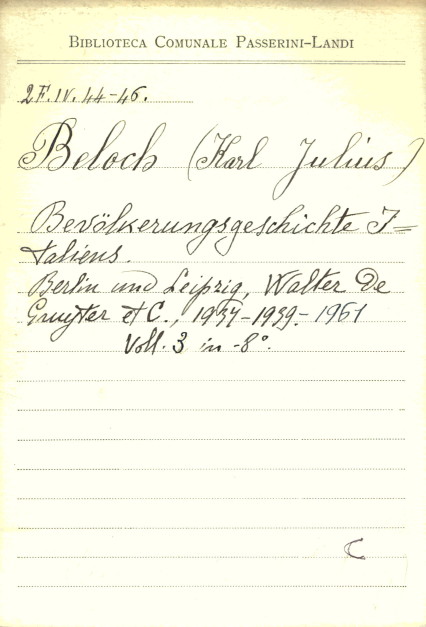 BIBLIOTECA COMUNALE PASSERINI-LANDI
2F.IV.44-46.
Beloch (Karl Julius)
Bevölkerungsgeschichte I=
taliens.
Berlin und Leipzig, Walter De
Gruyter et C., 1937-1939-1961
Voll. 3 in -8°.
C